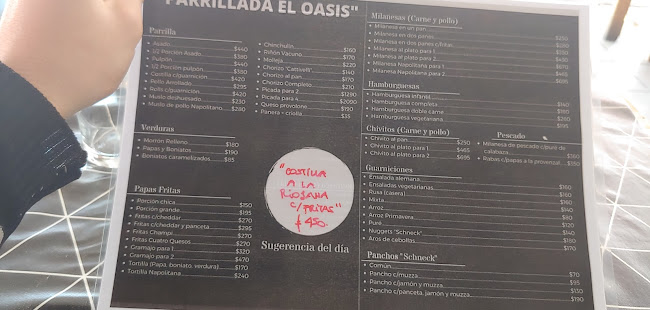 PARRILLADA EL OASIS"
Parrilla
Asado $440
1/2 Porción Asado $380
Pulpón $440
1/2 Porción pulpón $380
Costilla c/guarnición $420
Pollo Arrollado $295
Pollo c/guarnición $420
Muslo deshuesado $230
Muslo de pollo Napolitano $280
Chinchulín $160
Riñón Vacuno $170
Molleja $220
Chorizo "Cattivelli" $140
Chorizo al pan $170
Chorizo Completo $210
Picada para 2 $1290
Picada para 4 $2090
Queso provolone $190
Panera + criolla $35
Verduras
Morrón Relleno $180
Papas y Boniatos $190
Boniatos caramelizados $85
Papas Fritas
Porción chica $150
Porción grande $195
Fritas c/cheddar $270
Fritas c/cheddar y panceta $295
Fritas Champi $270
Fritas Cuatro Quesos $270
Gramajo para 1 $320
Gramajo para 2 $470
Tortilla (Papa, boniato, verdura) $170
Tortilla Napolitana $240
"COSTILLA
A LA
RIOJANA
C/FRITAS"
$450
Sugerencia del día
Milanesas (Carne y pollo)
Milanesa en un pan
Milanesa en dos panes
Milanesa en dos panes c/fritas
Milanesa al plato para 1
Milanesa al plato para 2
Milanesa Napolitana para 1
Milanesa Napolitana para 2 $695
Hamburguesas
Hamburguesa infantil
Hamburguesa completa $140
Hamburguesa doble carne $190
Hamburguesa vegetariana $280
$295
Chivitos (Carne y pollo)
Chivito al pan $250
Chivito al plato para 1 $465
Chivito al plato para 2 $695
Pescado
Milanesa de pescado c/puré de
calabaza $180
Rabas c/papas a la provenzal
Guarniciones
Ensalada alemana
Ensaladas vegetarianas $160
Rusa (casera) $160
Mixta $160
Arroz $140
Arroz Primavera $80
Puré $120
Nuggets "Schneck" $140
Aros de cebollas $170
Panchos "Schneck"
Común $70
Pancho c/muzza $95
Pancho c/jamón y muzza $130
Pancho c/panceta, jamón y muzza $190